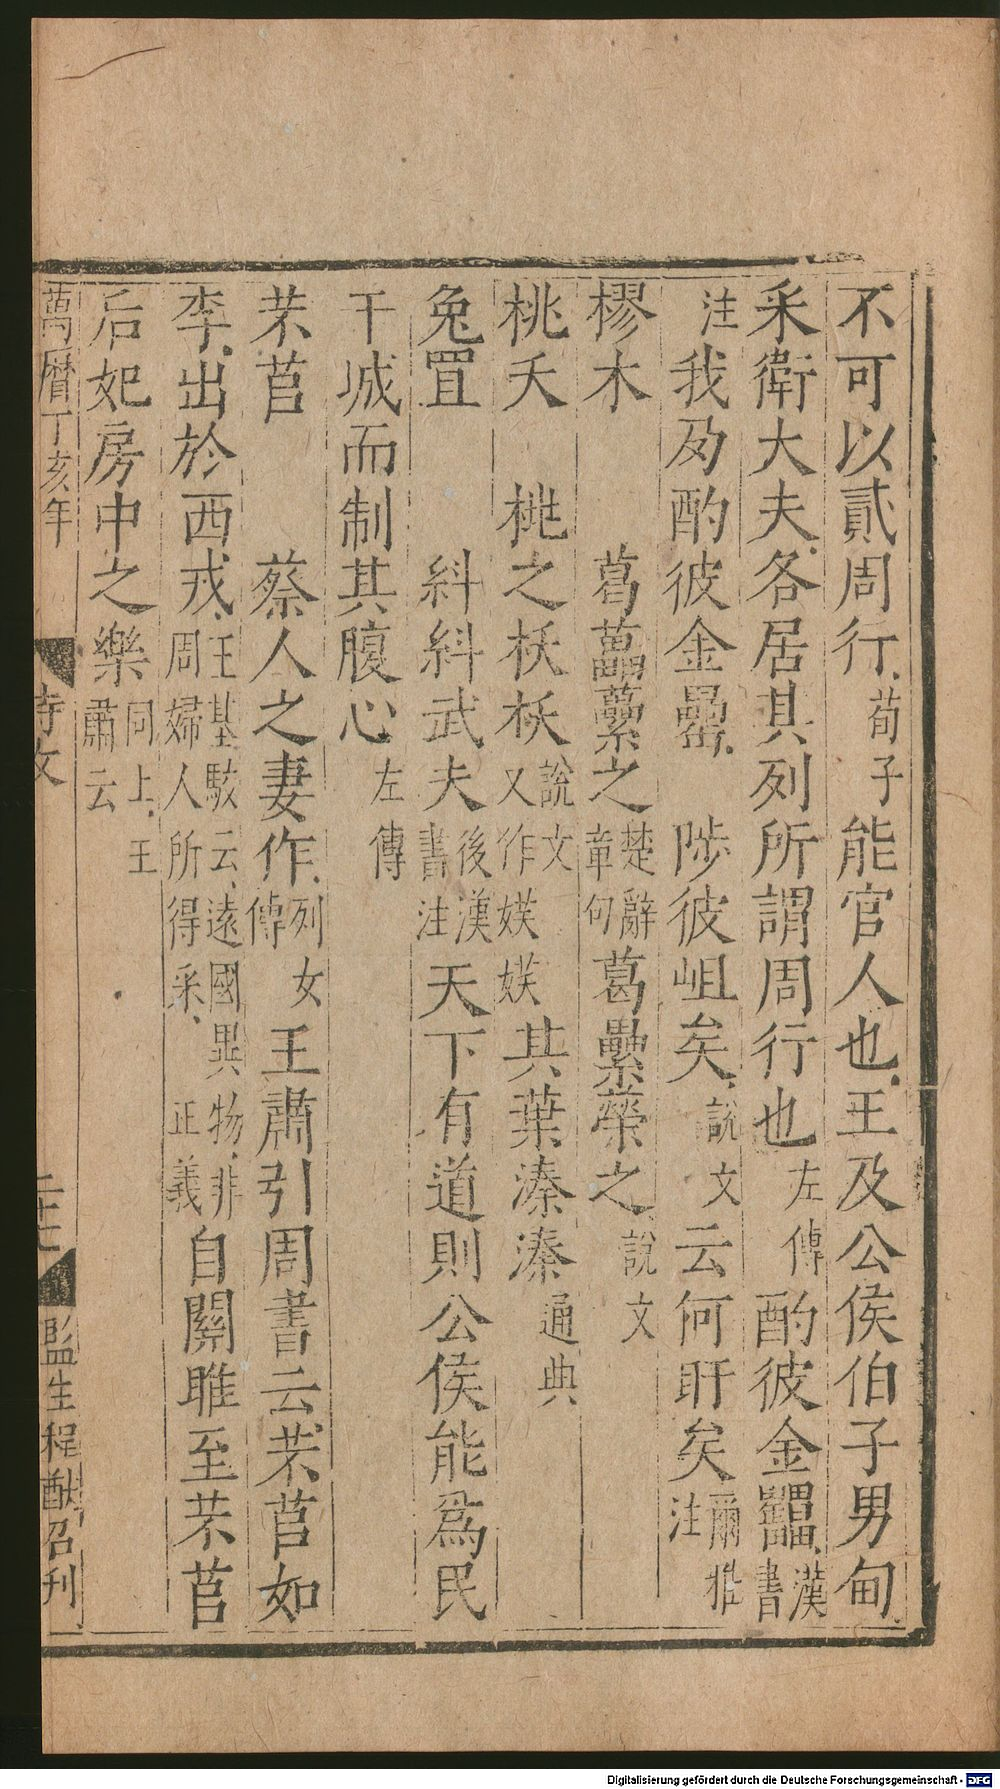 不可以貳周行荀子能官人也王及公侯伯子男甸
采衛大夫各居其列所謂周行也左傳酌彼金罍漢書
注我夃酌彼金罍陟彼岨矣說文云何盱矣爾雅注
樛木葛藟虆之楚辭章句葛纍蘂之說文
桃夭桃之枖枖說文又作媄媄其葉溱溱通典
兔罝糾糾武夫後漢書注天下有道則公侯能爲民
干城而制其腹心左傳
芣苢蔡人之妻作列女傳王肅引周書云芣苢如
李出於西戎王基駁云遠國異物非周婦人所得采正義自關雎至芣苢
后妃房中之樂同上王肅云
萬曆丁亥年
詩攷
二十七
監生程猷召刊
Digitalisierung gefördert durch die Deutsche Forschungsgemeinschaft - DFG